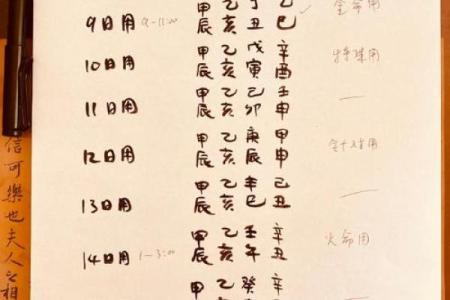 甲 乙 丁
9日用 9-11:00 金命用
辰 亥 丑 巳
甲 乙 戊 辛
10日用 特殊用
辰 亥 寅 酉
甲 乙 己 壬
11日用 —
辰 亥 卯 申
甲 乙 庚 甲
12日用
辰 亥 辰 申
甲 乙 辛 己
13日用 —
辰 亥 巳 丑
甲 乙 壬 辛
14日用 1-3:00 火命用
辰 亥 午 丑
甲 乙 癸 辛
信可樂也夫人之相